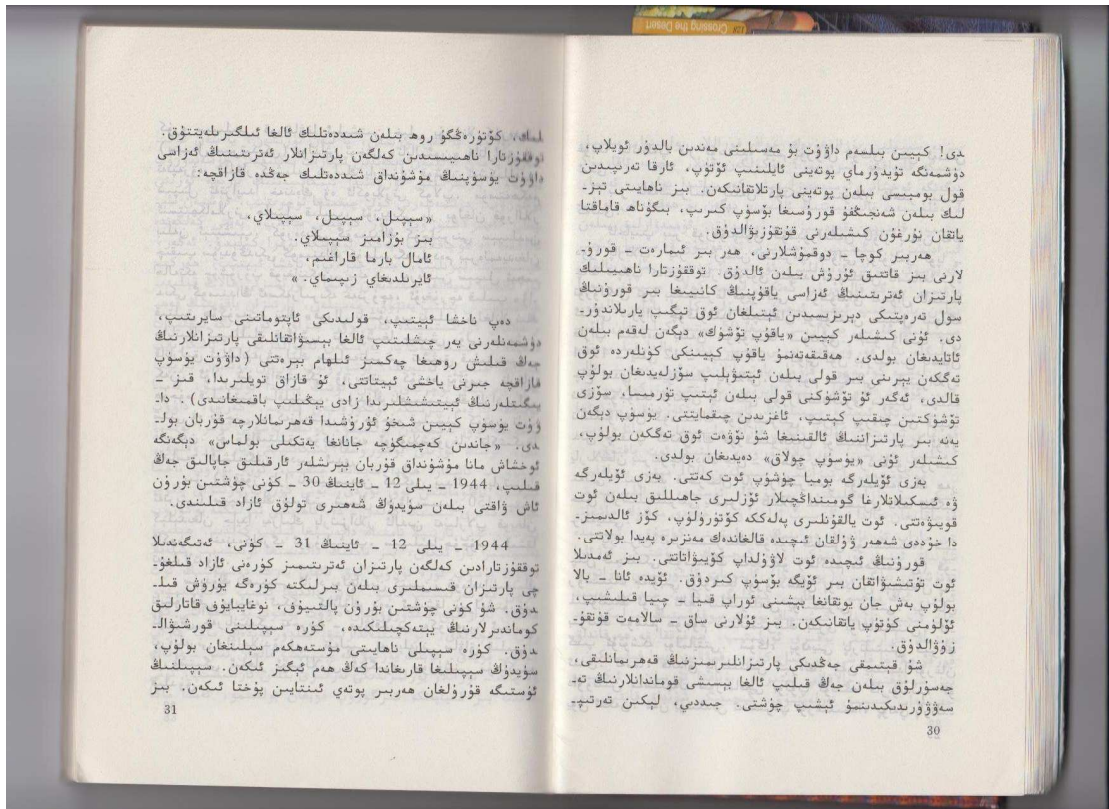 دى! كېيىن بىلسەم داۋۇت بۇ مەسىلىنى مەندىن بالدۇر ئويلاپ،
دۈشمەنگە تۇيدۇرماي پوتەينى ئايلىنىپ ئۆتۈپ، ئارقا تەرىپىدىن
قول بومبىسى بىلەن پوتەينى پارتلاتقانىكەن. بىز ناھايىتى تېز-
لىك بىلەن شەنجىڭفۇ قورۇسىغا بۆسۈپ كىرىپ، بىگۇناھ قاماقتا
ياتقان نۇرغۇن كىشىلەرنى قۇتقۇزىۋالدۇق.
ھەربىر كوچا - دوقمۇشلارنى، ھەر بىر ئىمارەت - قورۇ-
لارنى بىز قاتتىق ئۇرۇش بىلەن ئالدۇق. توققۇزتارا ناھىيىلىك
پارتىزان ئەترىتىنىڭ ئەزاسى ياقۇپنىڭ كانىيىغا بىر قورۇنىڭ
سول تەرەپتىكى دېرىزىسىدىن ئېتىلغان ئوق تېگىپ يارىلاندۇر-
دى. ئۇنى كىشىلەر كېيىن «ياقۇپ تۆشۈك» دېگەن لەقەم بىلەن
ئاتايدىغان بولدى. ھەقىقەتەنمۇ ياقۇپ كېيىنكى كۈنلەردە ئوق
تەگكەن يېرىنى بىر قولى بىلەن ئېتىۋېلىپ سۆزلەيدىغان بولۇپ
قالدى، ئەگەر ئۇ تۆشۈكنى قولى بىلەن ئېتىپ تۇرمىسا، سۆزى
تۆشۈكتىن چىقىپ كېتىپ، ئاغزىدىن چىقمايتتى. يۈسۈپ دېگەن
يەنە بىر پارتىزاننىڭ ئالقىنىغا شۇ نۆۋەت ئوق تەگكەن بولۇپ،
كىشىلەر ئۇنى «يۈسۈپ چولاق» دەيدىغان بولدى.
بەزى ئۆيلەرگە بومبا چۈشۈپ ئوت كەتتى. بەزى ئۆيلەرگە
ۋە ئىسكىلاتلارغا گومىنداڭچىلار ئۆزلىرى جاھىللىق بىلەن ئوت
قويۇۋەتتى. ئوت يالقۇنلىرى پەلەككە كۆتۈرۈلۈپ، كۆز ئالدىمىز-
دا خۇددى شەھەر ۋۇلقان ئىچىدە قالغاندەك مەنزىرە پەيدا بولاتتى.
قورۇنىڭ ئىچىدە ئوت لاۋۇلداپ كۆيىۋاتاتتى. بىز ئەمدىلا
ئوت تۇتىشىۋاتقان بىر ئۆيگە بۆسۈپ كىردۇق. ئۆيدە ئانا - بالا
بولۇپ بەش جان يوتقانغا بېشىنى ئوراپ قىيا - چىيا قىلىشىپ،
ئۆلۈمنى كۈتۈپ ياتقانىكەن. بىز ئۇلارنى ساق - سالامەت قۇتقۇ-
زۇۋالدۇق.
شۇ قېتىمقى جەڭدىكى پارتىزانلىرىمىزنىڭ قەھرىمانلىقى،
جەسۇرلۇق بىلەن جەڭ قىلىپ ئالغا بېسىشى قوماندانلارنىڭ تە-
سەۋۋۇرىدىكىدىنمۇ ئېشىپ چۈشتى. جىددىي، لېكىن تەرتىپ-
30
لىك، كۆتۈرەڭگۈ روھ بىلەن شىددەتلىك ئالغا ئىلگىرىلەيتتۇق.
توققۇزتارا ناھىيىسىدىن كەلگەن پارتىزانلار ئەترىتىنىڭ ئەزاسى
داۋۇت يۈسۈپنىڭ مۇشۇنداق شىددەتلىك جەڭدە قازاقچە:
«سېپىل، سېپىل، سېپىلاي،
بىز بۇزامىز سېپىلاي.
ئامال بارما قاراغىم،
ئايرىلدىغاي زىپىماي. »
دەپ ناخشا ئېيتىپ، قولىدىكى ئاپتوماتىنى سايرىتىپ،
دۈشمەنلەرنى يەر چىشلىتىپ ئالغا بېسىۋاتقانلىقى پارتىزانلارنىڭ
جەڭ قىلىش روھىغا چەكسىز ئىلھام بېرەتتى (داۋۇت يۈسۈپ
قازاقچە جىرنى ياخشى ئېيتاتتى، ئۇ قازاق تويلىرىدا، قىز -
يىگىتلەرنىڭ ئېيتىشىشلىرىدا زادى يېڭىلىپ باقمىغانىدى). دا-
ۋۇت يۈسۈپ كېيىن شىخۇ ئۇرۇشىدا قەھرىمانلارچە قۇربان بول-
دى. «جاندىن كەچمىگۈچە جانانغا يەتكىلى بولماس» دېگەنگە
ئوخشاش مانا مۇشۇنداق قۇربان بېرىشلەر ئارقىلىق جاپالىق جەڭ
قىلىپ، 1944 - يىلى 12 - ئاينىڭ 30 - كۈنى چۈشتىن بۇرۇن
ئاش ۋاقتى بىلەن سۈيدۈڭ شەھىرى تولۇق ئازاد قىلىندى.
1944 - يىلى 12 - ئاينىڭ 31 - كۈنى، ئەتىگەندىلا
توققۇزتارادىن كەلگەن پارتىزان ئەترىتىمىز كۈرەنى ئازاد قىلغۇ-
چى پارتىزان قىسىملىرى بىلەن بىرلىكتە كۈرەگە يۈرۈش قىل-
دۇق. شۇ كۈنى چۈشتىن بۇرۇن پالتىيوف، نوغايبايۇف قاتارلىق
كوماندىرلارنىڭ يېتەكچىلىكىدە، كۈرە سېپىلىنى قورشىۋال-
دۇق. كۈرە سېپىلى ناھايىتى مۇستەھكەم سېلىنغان بولۇپ،
سۈيدۈڭ سېپىلىغا قارىغاندا كەڭ ھەم ئېگىز ئىكەن. سېپىلنىڭ
ئۈستىگە قۇرۇلغان ھەربىر پوتەي ئىنتايىن پۇختا ئىكەن. بىز
31
Crossing the Desert